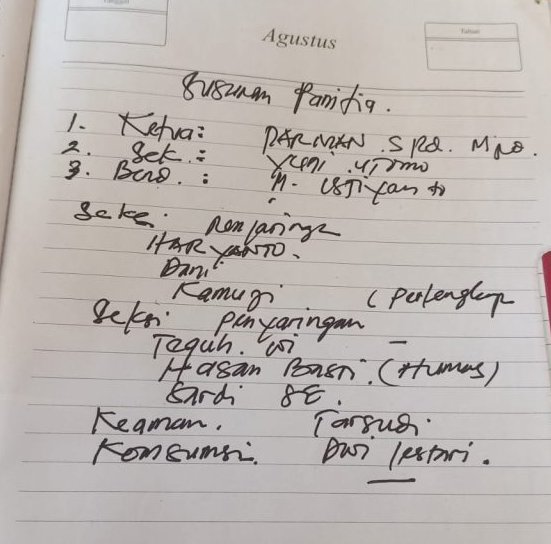 Agustus
Susunan Panitia.
1. Ketua: PARMAN. S Pd. M Pd.
2. Sek.: Yuni. Utomo
3. Bend.: M. ISTIYANTO
Seksi. Penjaringan
HARYANTO.
Dani
Kamugi (Perlengkap
Seksi Penyaringan
Teguh. Wi
Hasan Basri. (Humas)
Sardi SE.
Keaman. Tarsudi.
Konsumsi. Dwi lestari.